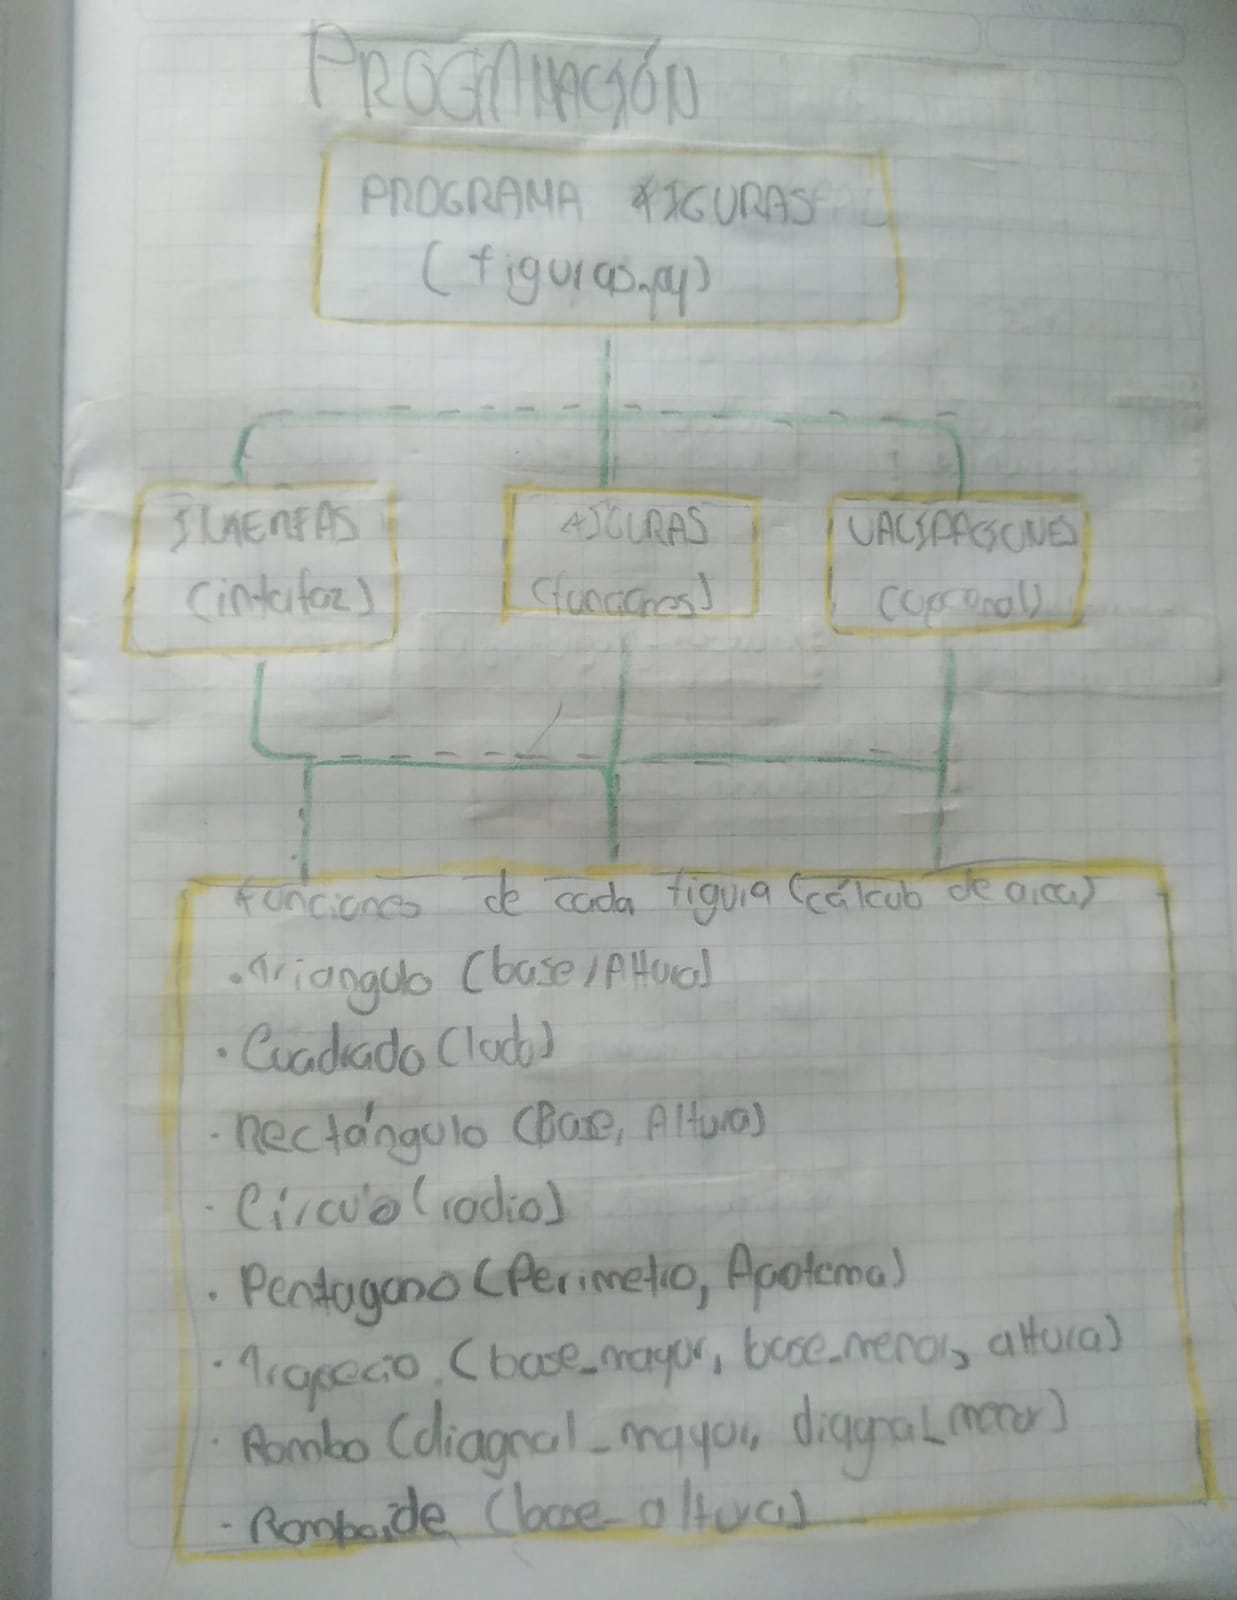 PROGRAMACIÓN
PROGRAMA FIGURAS
(figuras.py)
(interfaz)
FIGURAS
(funciones)
VALIDACIONES
(opcional)
funciones de cada figura (cálculo de area)
• Triangulo (base, Altura)
• Cuadrado (lado)
• Rectángulo (Base, Altura)
• Círculo (radio)
• Pentagono (Perimetro, Apotema)
• Trapecio. (base_mayor, base_menor, altura)
• Rombo (diagnal_mayor, diagnal_menor)
- Romboide (base_altura)